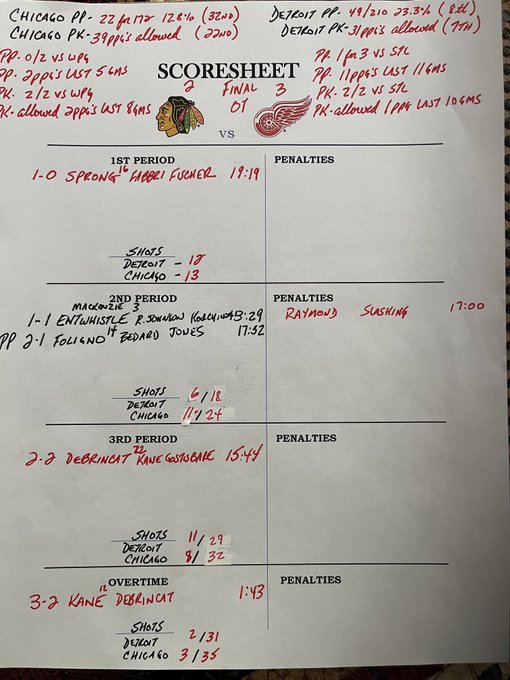 CHICAGO PP- 22 for 172 12.8% (32ND)
CHICAGO PK- 39ppg's allowed (22ND)
DETROIT PP- 49/210 23.3% (8th)
DETROIT PK- 31ppg's allowed (7TH)
PP- 0/2 vs WPG
PP- 2ppg's LAST 5GMS
PK- 2/2 vs WPG
PK-allowed 2ppg's LAST 8GMS
PP- 1 for 3 vs STL
PP- 11ppg's LAST 11GMS
PK- 2/2 vs STL
PK-allowed 1ppg LAST 10GMS
SCORESHEET
2 FINAL 3
OT
VS
1ST PERIOD
PENALTIES
1-0 SPRONG 16 FABBRI FISCHER 19:19
SHOTS
DETROIT - 12
CHICAGO - 13
2ND PERIOD
PENALTIES
MACKENZIE 3
1-1 ENTWHISTLE R.JOHNSON KORCHINSKI 3:29
PP 2-1 FOLIGNO 14 BEDARD JONES 17:52
RAYMOND SLASHING 17:00
SHOTS
DETROIT 6/18
CHICAGO 11/24
3RD PERIOD
PENALTIES
2-2 DEBRINCAT 22 KANE GOSTISBEHERE 15:44
SHOTS
DETROIT 11/29
CHICAGO 8/32
OVERTIME
PENALTIES
3-2 KANE 12 DEBRINCAT 1:43
SHOTS
DETROIT 2/31
CHICAGO 3/35